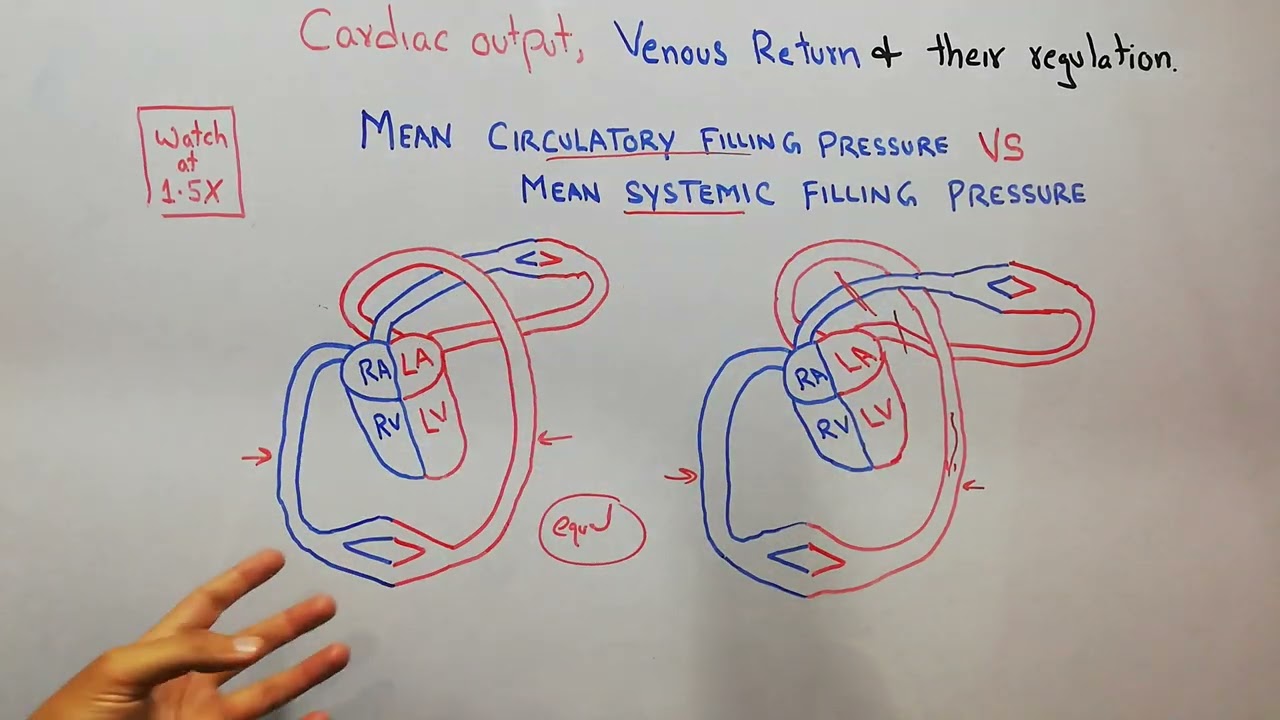 Cardiac output, Venous Return & their regulation.
Watch
at
1.5X
MEAN CIRCULATORY FILLING PRESSURE VS
MEAN SYSTEMIC FILLING PRESSURE
RA LA
RV LV
RA LA
RV LV
equal